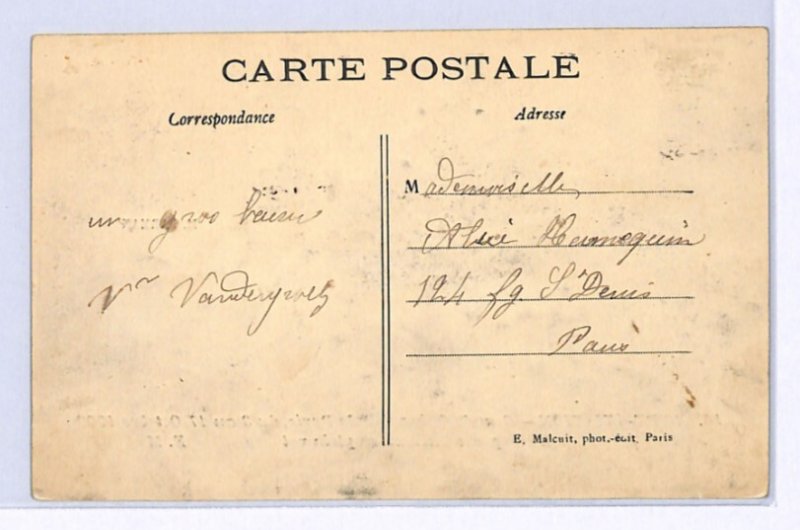 CARTE POSTALE
Correspondance
Adresse
un gros
Vr
Mademoiselle
Hennequin
124 fg. St Denis
Paris
E. Malcuit, phot.-édit. Paris